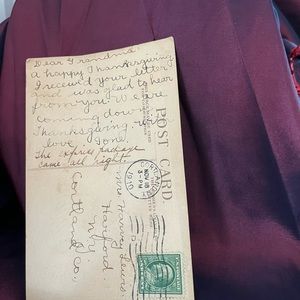 Dear Grandma.
A happy Thanksgiving
I received your letter
and was glad to hear
from you. We are
coming down
Thanksgiving
love
The express package
came all right.
POST CARD.
NOV 18
3 - PM
1910
Mrs
Harford
N.Y.
Cortland Co.